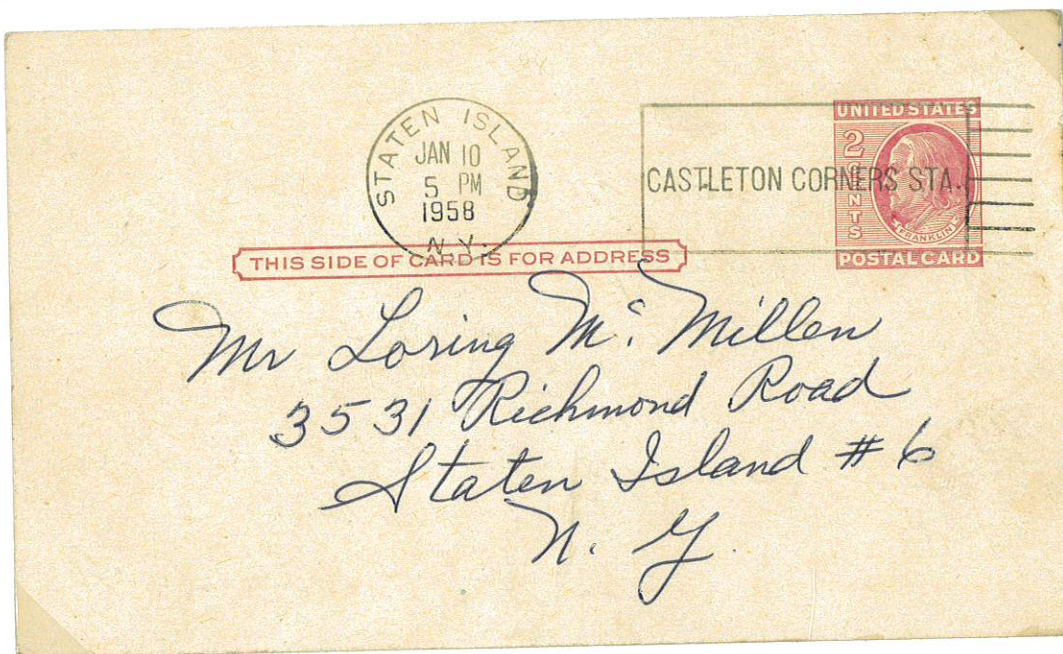 STATEN ISLAND
JAN 10
5 PM
1958
N.Y.
CASTLETON CORNERS STA.
UNITED STATES
2 CENTS
FRANKLIN
POSTAL CARD
THIS SIDE OF CARD IS FOR ADDRESS
Mr Loring Mc. Millen
3531 Richmond Road
Staten Island # 6
N. Y.